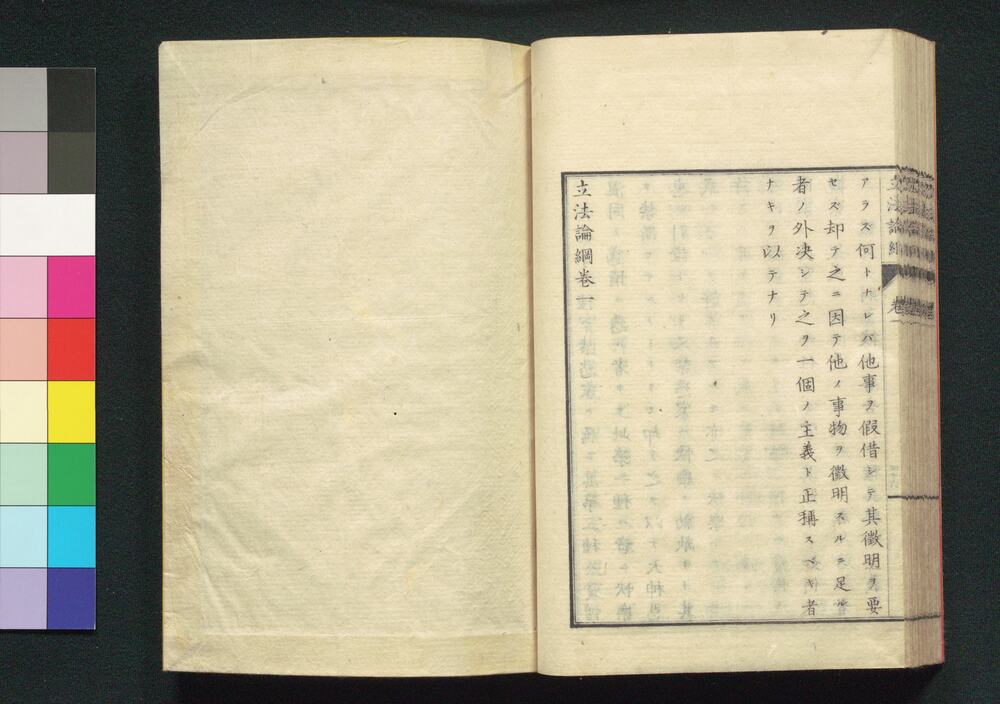 アラス何トナレバ他事ヲ假借シテ其徴明ヲ要
セズ却テ之ニ因テ他ノ事物ヲ徴明スルニ足ル
者ノ外決シテ之ヲ一個ノ主義ト正稱スベキ者
ナキヲ以テナリ
立法論綱卷一
立法論綱
卷